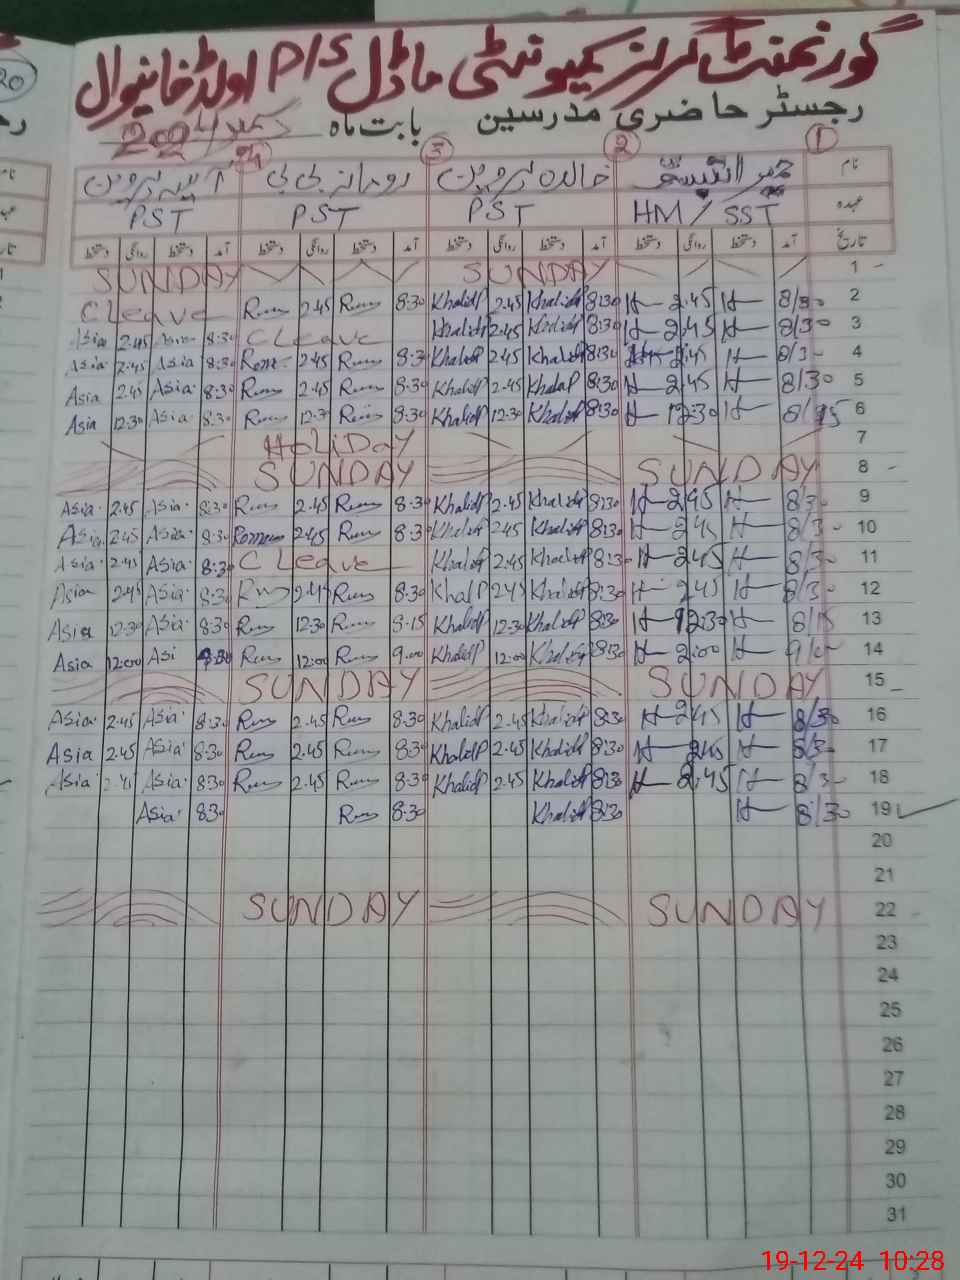 گورنمنٹ گرلز کمیونٹی ماڈل P/S اولڈ خانیوال
رجسٹر حاضری مدرسین بابت ماہ دسمبر 2024
1 2 3 4
نام خالدہ پروین رومانہ بی بی آسیہ پروین
عہدہ HM/SST PST PST PST
تاریخ آمد دستخط روانگی دستخط آمد دستخط روانگی دستخط آمد دستخط روانگی دستخط آمد دستخط روانگی دستخط
SUNDAY SUNDAY 1
C Leave 2.45 8.30 Khalida P 2.45 Khalida P 8:30 H 2.45 H 8/30 2
Asia 2.45 Asia 8.30 C Leave Khalida P 2.45 Khalida P 8:30 H 2.45 H 8/30 3
Asia 2.45 Asia 8.30 2.45 8.3 Khalida P 2.45 Khalida P 8:30 2.45 H 8/30 4
Asia 2.45 Asia 8.30 2.45 8.30 Khalida P 2.45 Khalida P 8:30 H 2.45 H 8/30 5
Asia 12.30 Asia 8.30 12.30 8.30 Khalida P 12.30 Khalida P 8:30 H 12.30 H 8/15 6
HoliDay 7
SUNDAY SUNDAY 8
Asia 2.45 Asia 8.30 2.45 8.30 Khalida P 2.45 Khalida P 8:30 H 2.45 H 8/30 9
Asia 2.45 Asia 8.30 2.45 8.30 Khalida P 2.45 Khalida P 8:30 H 2.45 H 8/30 10
Asia 2.45 Asia 8.30 C Leave Khalida P 2.45 Khalida P 8:30 H 2.45 H 8/30 11
Asia 2.45 Asia 8.30 2.45 8.30 Khalida P 2.45 Khalida P 8:30 H 2.45 H 8/30 12
Asia 12.30 Asia 8.30 12.30 8.15 Khalida P 12.30 Khalida P 8:30 H 12.30 H 8/15 13
Asia 12:00 Asi 8.30 12:00 9.00 Khalida P 12:00 Khalida P 8:30 H 2:00 H 14
SUNDAY SUNDAY 15
Asia 2.45 Asia 8.30 2.45 8.30 Khalida P 2.45 Khalida P 8:30 H 2.45 H 8/30 16
Asia 2.45 Asia 8.30 2.45 8.30 Khalida P 2.45 Khalida P 8:30 H 2.45 H 8/30 17
Asia 2.45 Asia 8.30 2.45 8.30 Khalida P 2.45 Khalida P 8:30 H 2.45 H 8/30 18
Asia 8.30 8.30 Khalida P 8:30 H 8/30 19
20
21
SUNDAY SUNDAY 22
23
24
25
26
27
28
29
30
31
19-12-24 10:28